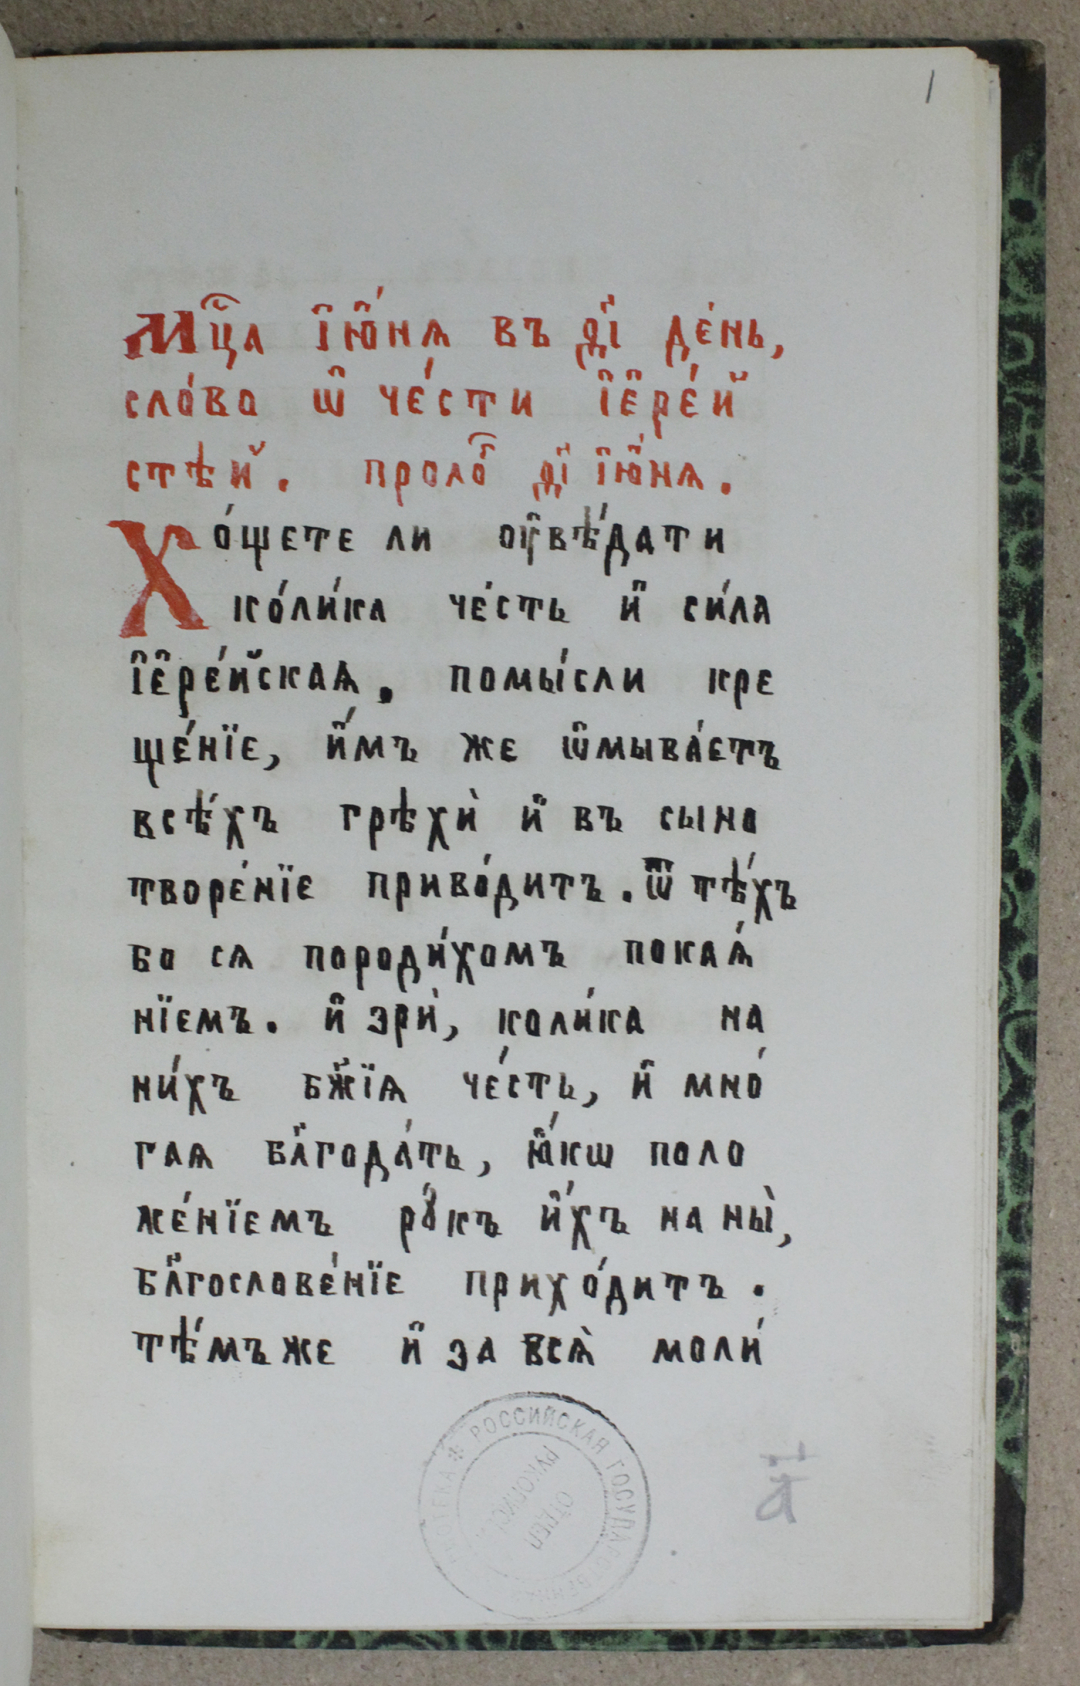 1
Мц҃а і҆ю҆́нѧ въ д҃і де́нь,
сло́во ѡ҆ че́сти і҆є҆ре́й
стѣй. проло́г д҃і і҆ю҆́нѧ.
Хо́щете ли оу҆вѣ́дати
ко́ли́ка че́сть и҆ си́ла
і҆є҆ре́йскаѧ, помы́сли кре
ще́нїе, и҆́мъ же ѡ҆мыва́етъ
всѣ́хъ грѣхѝ и҆ въ сыно
творе́нїе приво́дитъ. ѿ тѣ́хъ
бо сѧ породи́хомъ покаѧ́
нїемъ. и҆ зрѝ, коли́ка на
ни́хъ бж҃їѧ че́сть, и҆ мно́
гаѧ бл҃года́ть, ꙗ҆́кѡ поло
же́нїемъ рꙋ́къ и҆́хъ на ны̀,
бл҃гослове́нїе прихо́дитъ.
тѣ́мъже и҆ за всѧ̀ моли́
РОССИЙСКАЯ ГОСУДАРСТВЕННАЯ
ОТДЕЛ
а҃